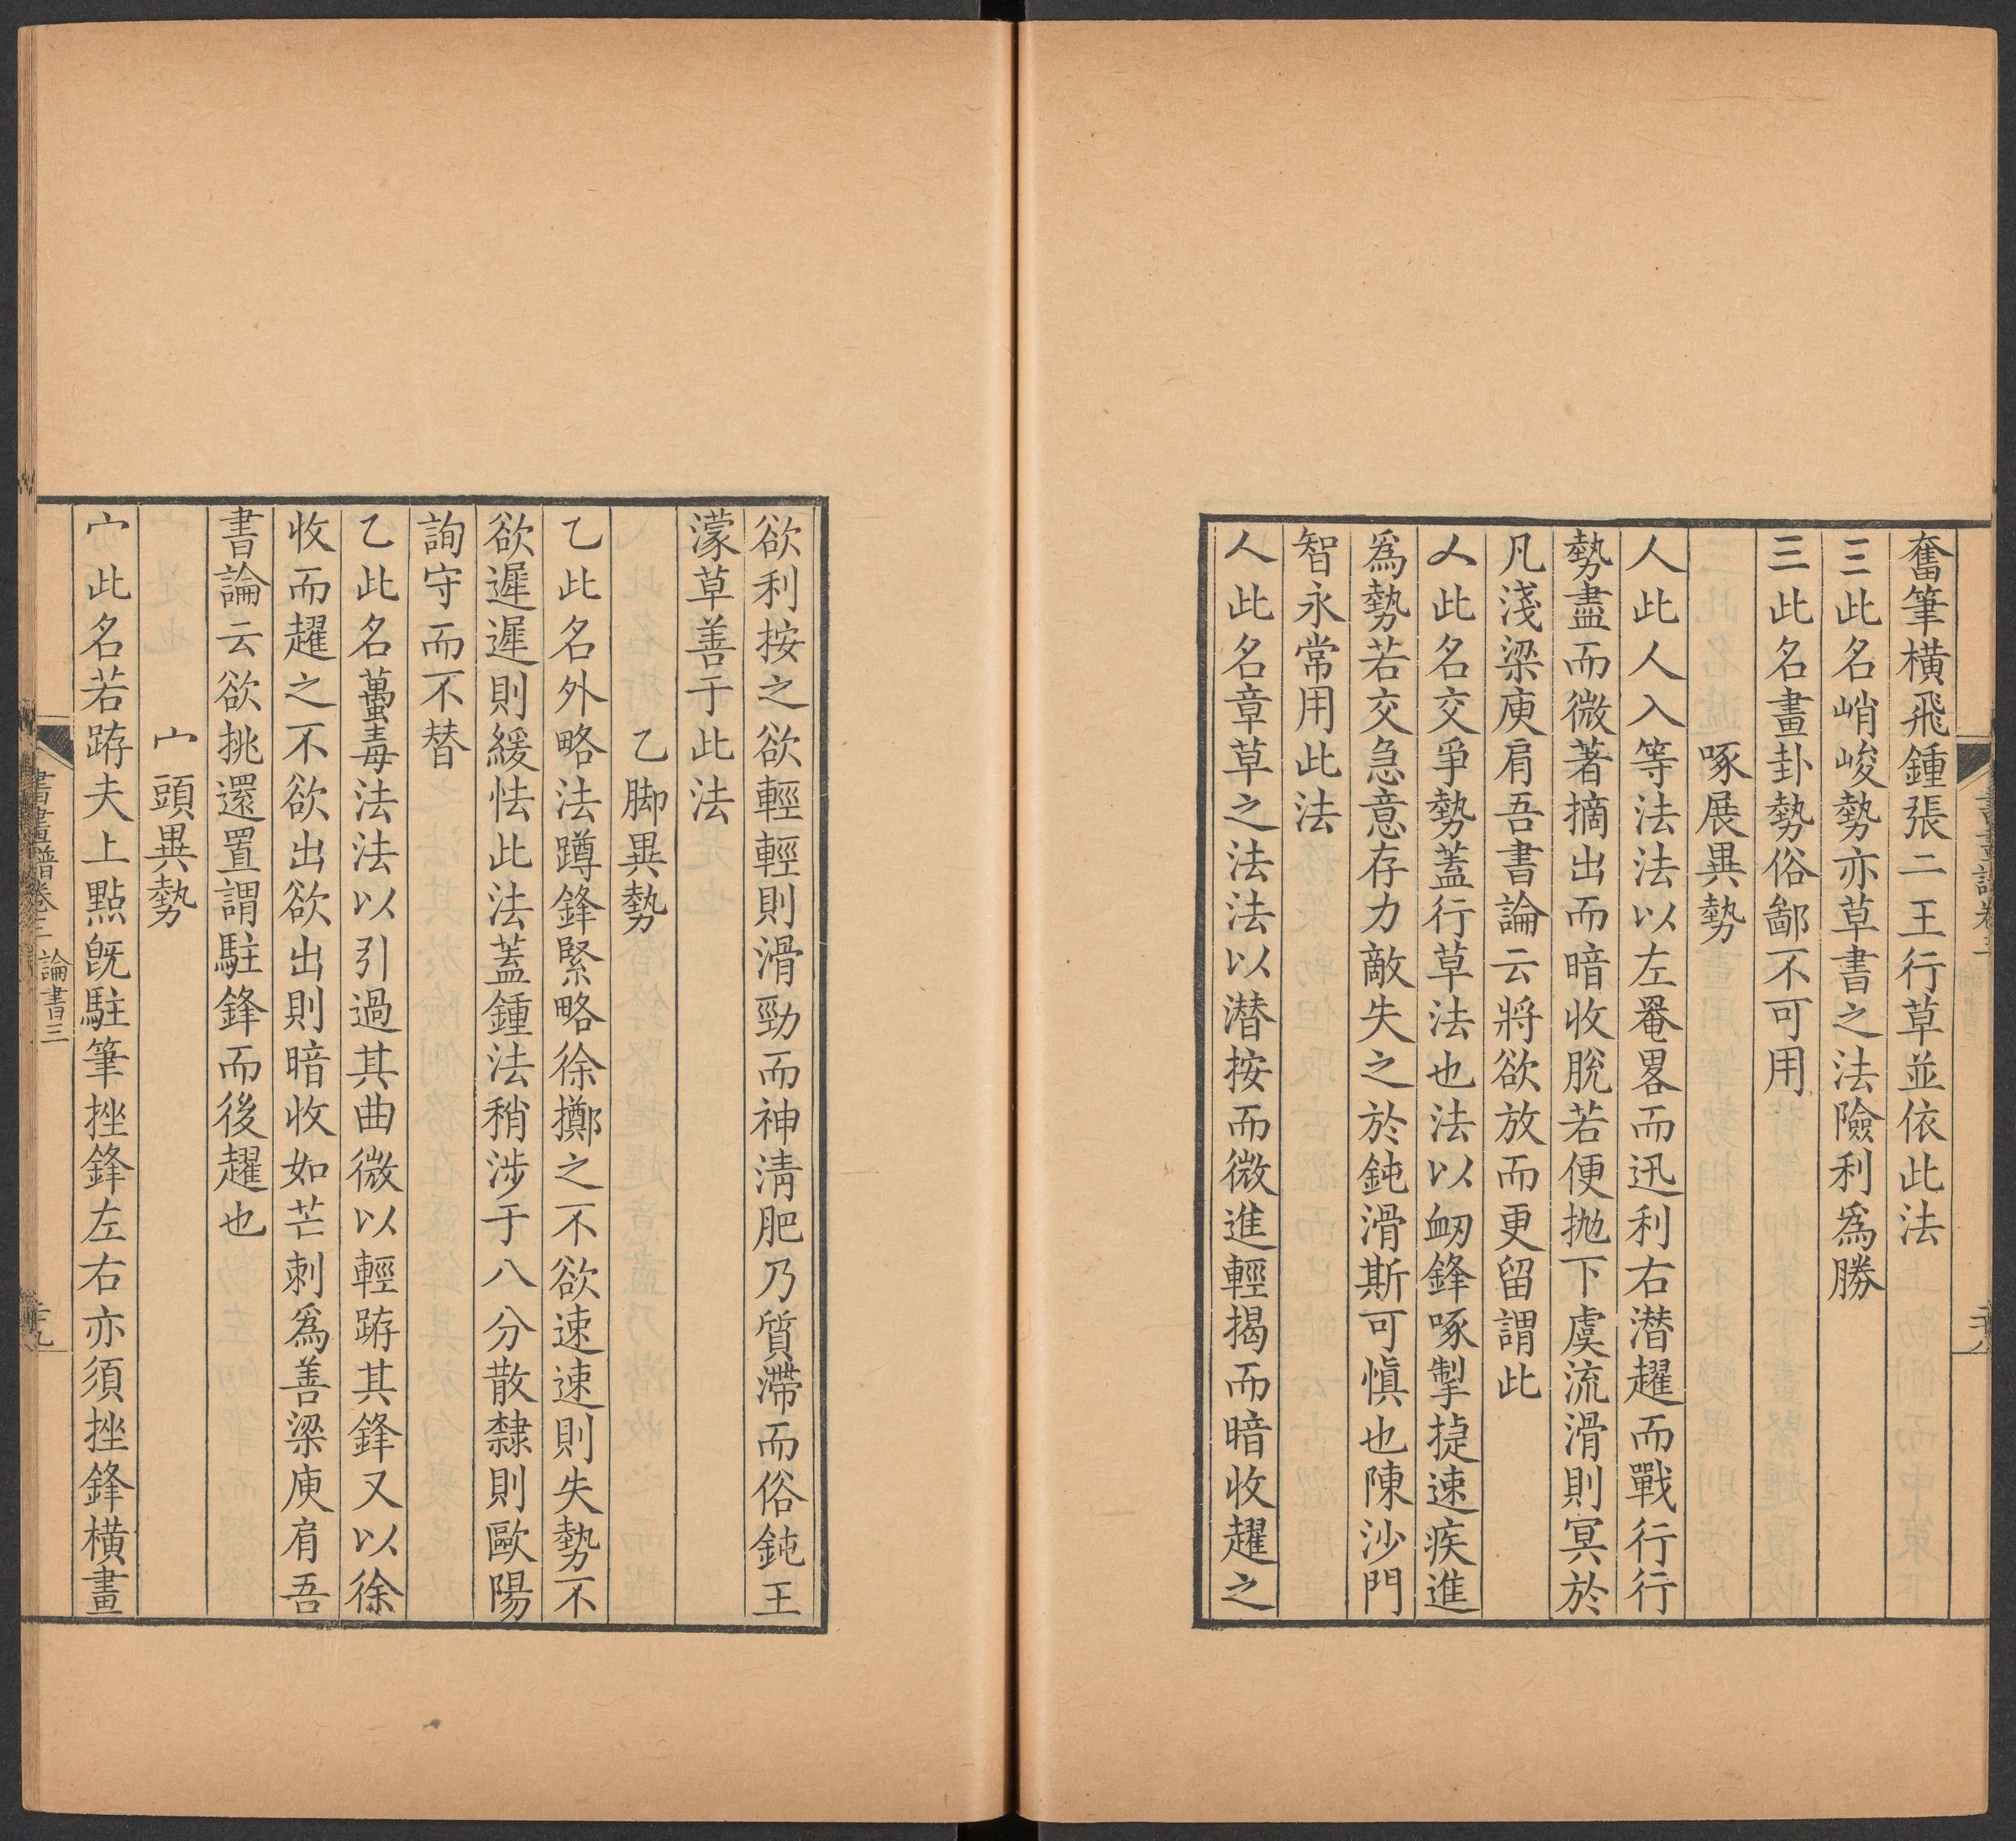 奮筆橫飛鍾張二王行草並依此法
三此名峭峻勢亦草書之法險利爲勝
三此名畫卦勢俗鄙不可用
啄展異勢
人此人入等法法以左罨畧而迅利右潜趯而戰行行
勢盡而微著摘出而暗收脫若便拋下虞流滑則冥於
凡淺梁庾肩吾書論云將欲放而更留謂此
人此名交爭勢蓋行草法也法以衂鋒啄掣㨗速疾進
爲勢若交急意存力敵失之於鈍滑斯可愼也陳沙門
智永常用此法
人此名章草之法法以潜按而微進輕揭而暗收趯之
欲利按之欲輕輕則滑勁而神淸肥乃質滯而俗鈍王
濛草善于此法
乙脚異勢
乙此名外略法蹲鋒緊略徐擲之不欲速速則失勢不
欲遲遲則緩怯此法蓋鍾法稍涉于八分散隸則歐陽
詢守而不替
乙此名蠆毒法法以引過其曲微以輕跱其鋒又以徐
收而趯之不欲出欲出則暗收如芒刺爲善梁庾肩吾
書論云欲挑還置謂駐鋒而後趯也
宀頭異勢
宀此名若跱夫上點旣駐筆挫鋒左右亦須挫鋒橫畫
書畫譜卷三 論書三